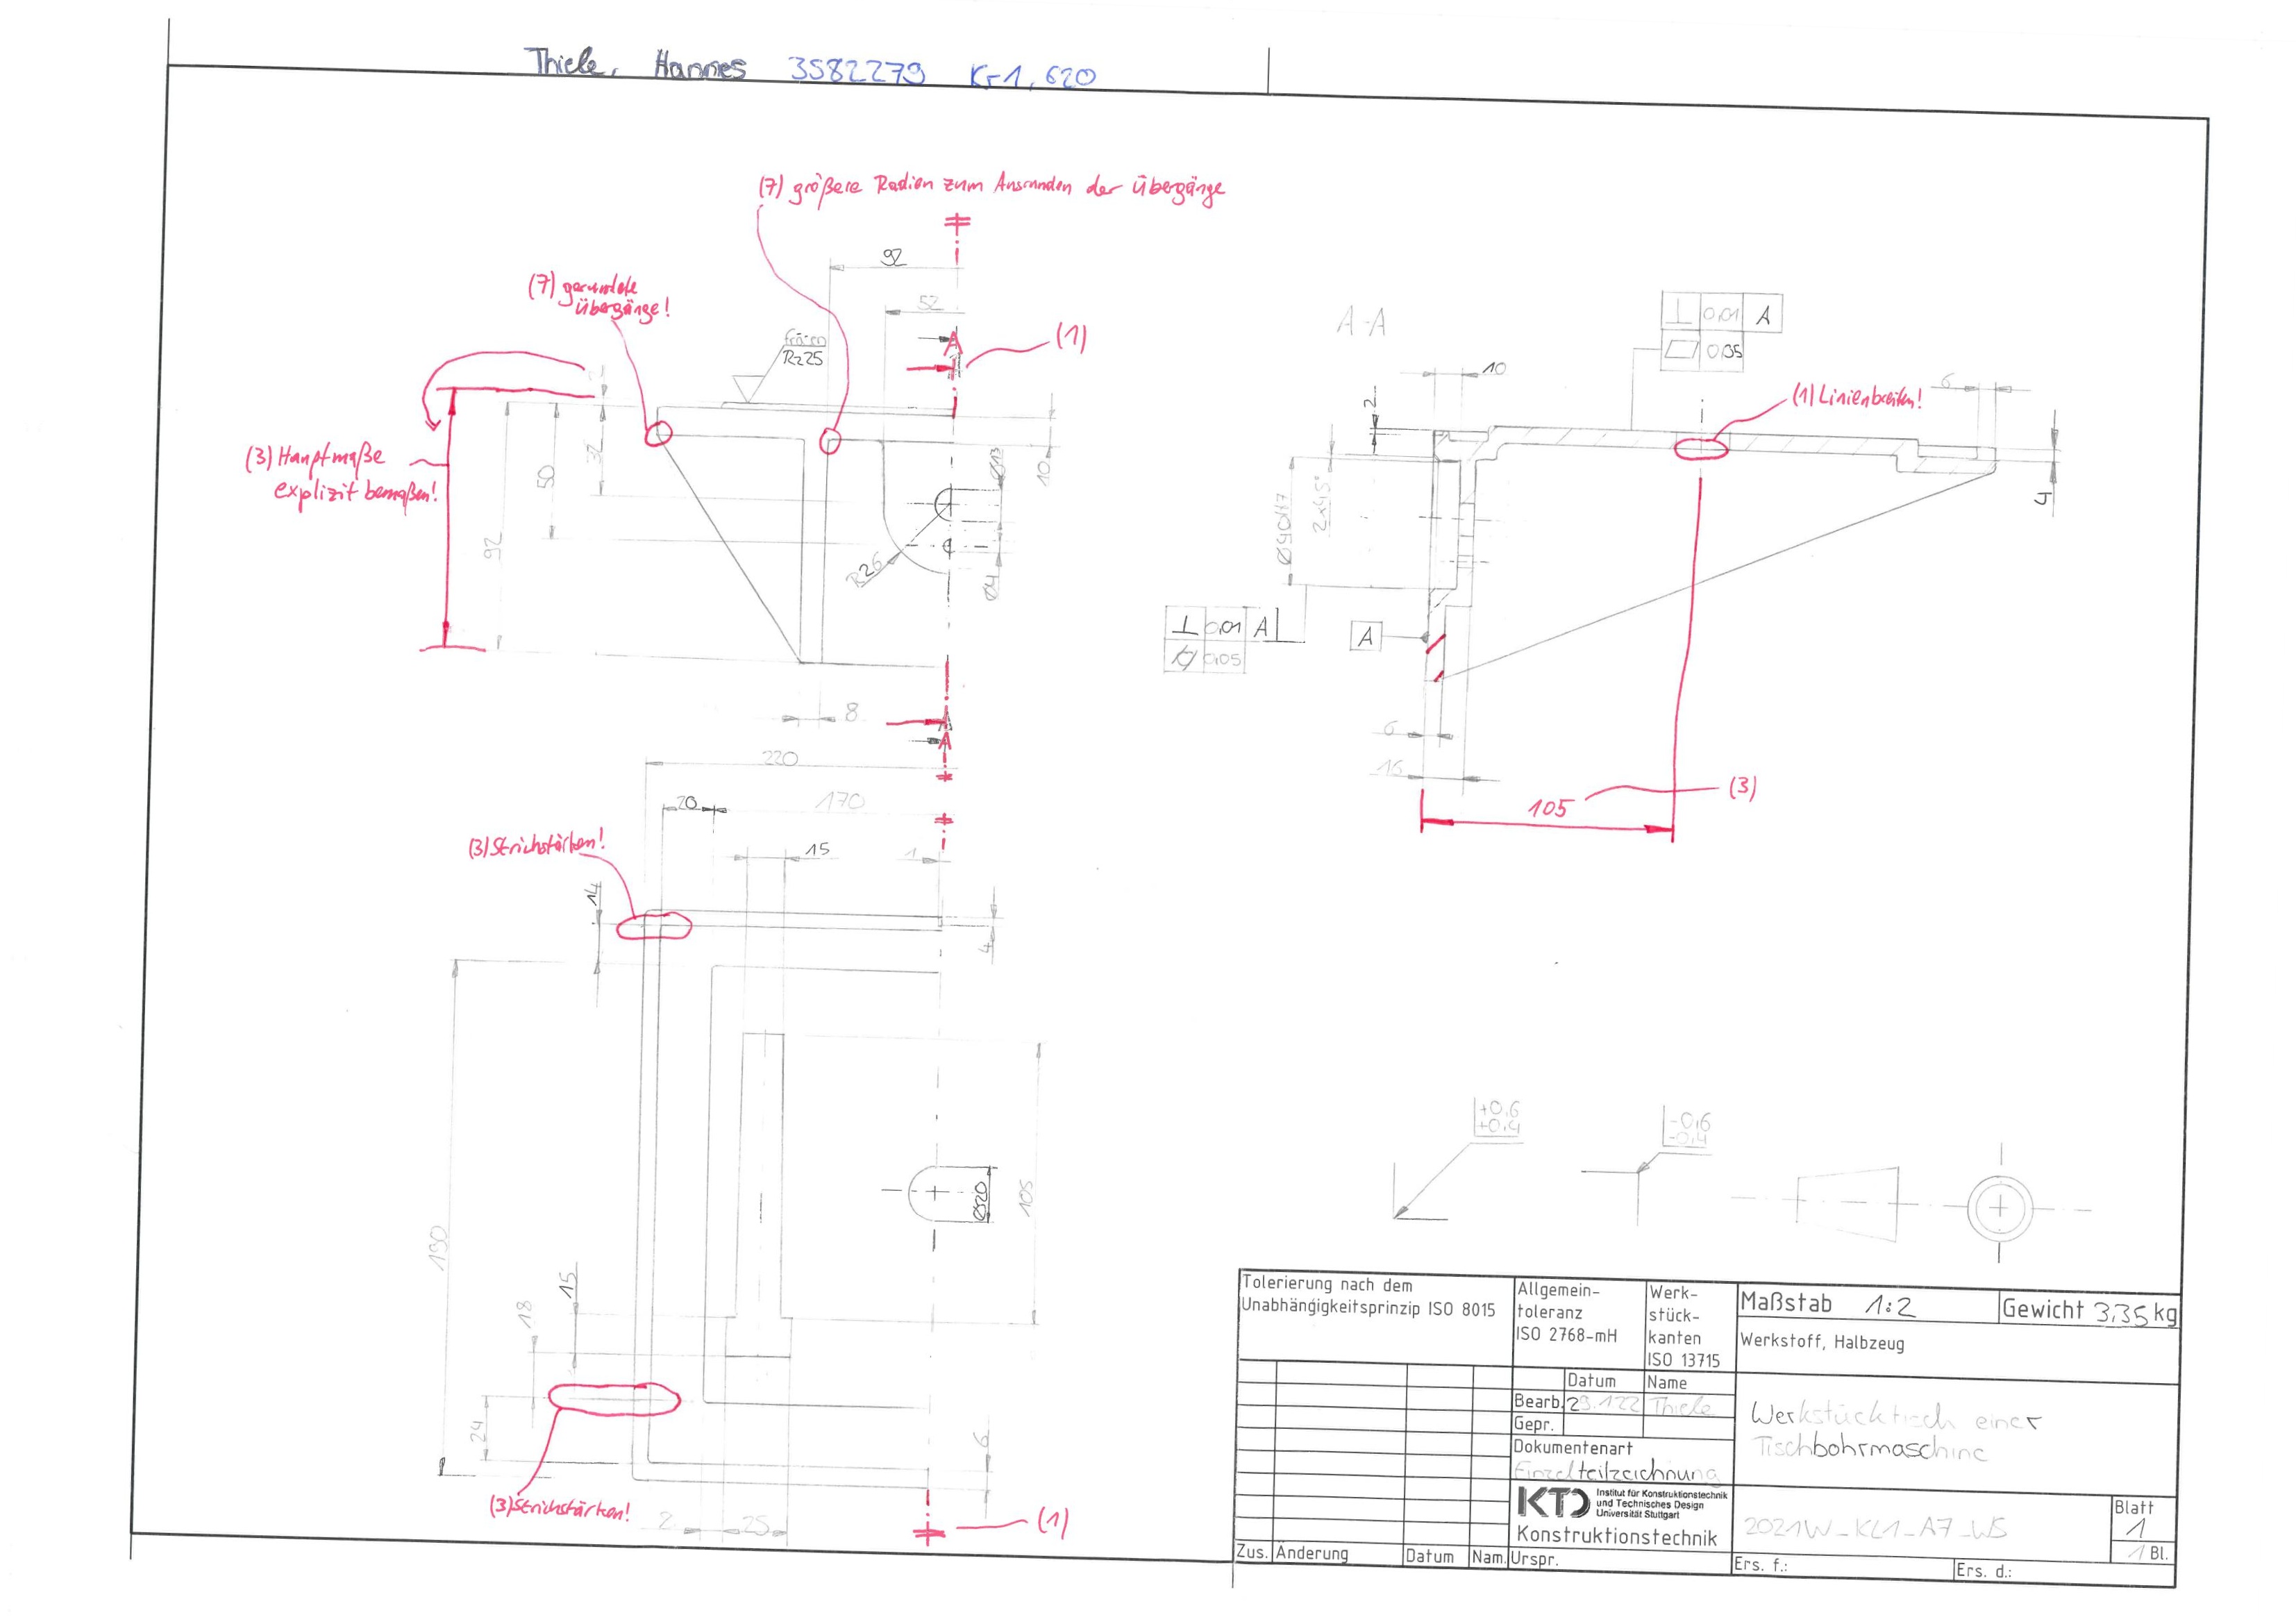 Thiele, Hannes 3582279 Kr1, 620
(7) größere Radien zum Ausrunden der Übergänge
(7) gerundete
Übergänge!
92
52
fräsen
Rz25
A
(1)
(3) Hauptmaße
explizit bemaßen!
92
50
32
2
R26
Ø13
Ø4
10
8
A
A
A-A
⊥ 0,01 A
▱ 0,05
10
2
6
(1) Linienbreiten!
4
Ø90H7
2x45°
⊥ 0,01 A
⌭ 0,05
A
6
16
105
(3)
220
20
170
15
1
(3) Strichstärken!
14
4
190
105
Ø20
15
18
24
6
(3) Strichstärken!
2
25
(1)
+0,6
+0,4
-0,6
-0,4
Tolerierung nach dem
Unabhängigkeitsprinzip ISO 8015
Allgemein-
toleranz
ISO 2768-mH
Werk-
stück-
kanten
ISO 13715
Maßstab 1:2
Gewicht 3,35 kg
Werkstoff, Halbzeug
Datum
Name
Bearb. 29.1.22 Thiele
Gepr.
Dokumentenart
Einzelteilzeichnung
Werkstücktisch einer
Tischbohrmaschine
KTD
Institut für Konstruktionstechnik
und Technisches Design
Universität Stuttgart
Konstruktionstechnik
2021W_KL1_A7_WS
Blatt
1
1 Bl.
Zus. Änderung Datum Nam. Urspr.
Ers. f.:
Ers. d.: